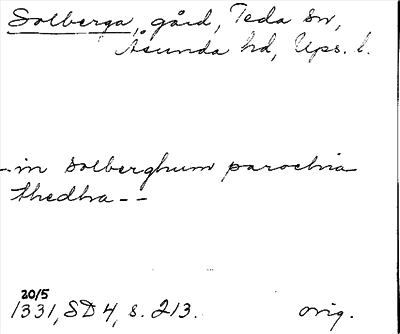 Solberga, gård, Teda sn,
Åsunda hd, Ups. l.
- in Solberghum parochia
thedha - -
20/5
1331, SD 4, s. 213. orig.